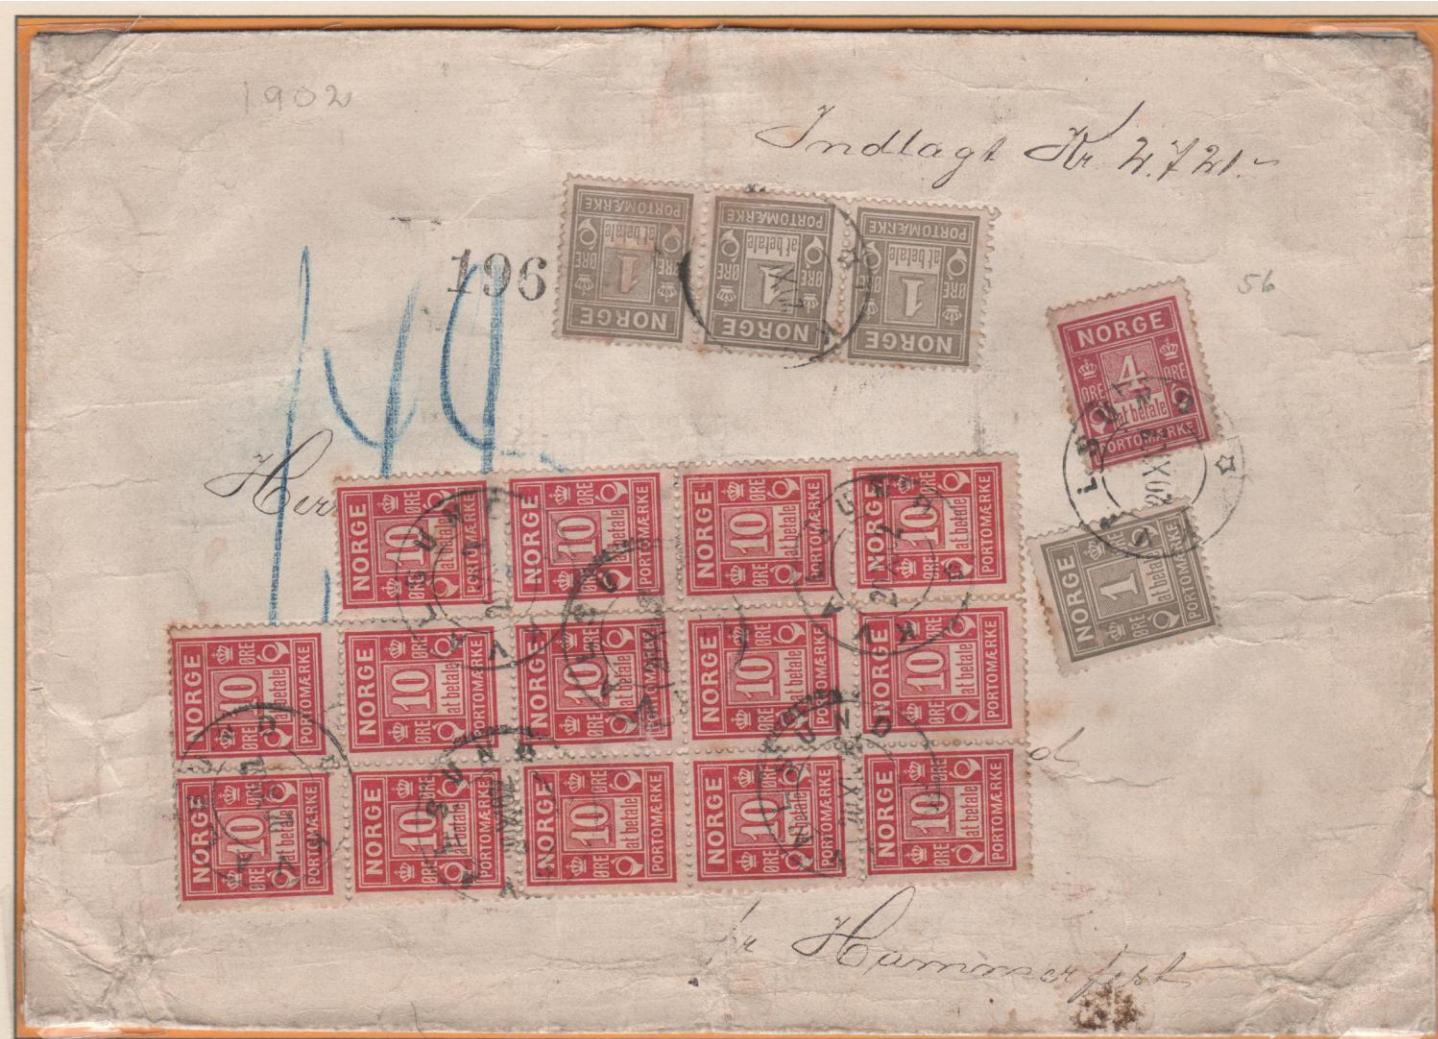 1902
Indlagt Kr. 2.721.-
196
NORGE 1 ØRE ØRE at betale PORTOMÆRKE
NORGE 1 ØRE ØRE at betale PORTOMÆRKE
NORGE 1 ØRE ØRE at betale PORTOMÆRKE
56
NORGE
ØRE 4 ØRE
at betale
PORTOMÆRKE
20 XI
NORGE 1 ØRE ØRE at betale PORTOMÆRKE
Herr
NORGE 10 ØRE ØRE at betale PORTOMÆRKE
NORGE 10 ØRE ØRE at betale PORTOMÆRKE
NORGE 10 ØRE ØRE at betale PORTOMÆRKE
NORGE 10 ØRE ØRE at betale PORTOMÆRKE
NORGE 10 ØRE ØRE at betale PORTOMÆRKE
NORGE 10 ØRE ØRE at betale PORTOMÆRKE
NORGE 10 ØRE ØRE at betale PORTOMÆRKE
NORGE 10 ØRE ØRE at betale PORTOMÆRKE
NORGE 10 ØRE ØRE at betale PORTOMÆRKE
NORGE 10 ØRE ØRE at betale PORTOMÆRKE
NORGE 10 ØRE ØRE at betale PORTOMÆRKE
NORGE 10 ØRE ØRE at betale PORTOMÆRKE
NORGE 10 ØRE ØRE at betale PORTOMÆRKE
NORGE 10 ØRE ØRE at betale PORTOMÆRKE
KVALSUND
d
pr Hammerfest